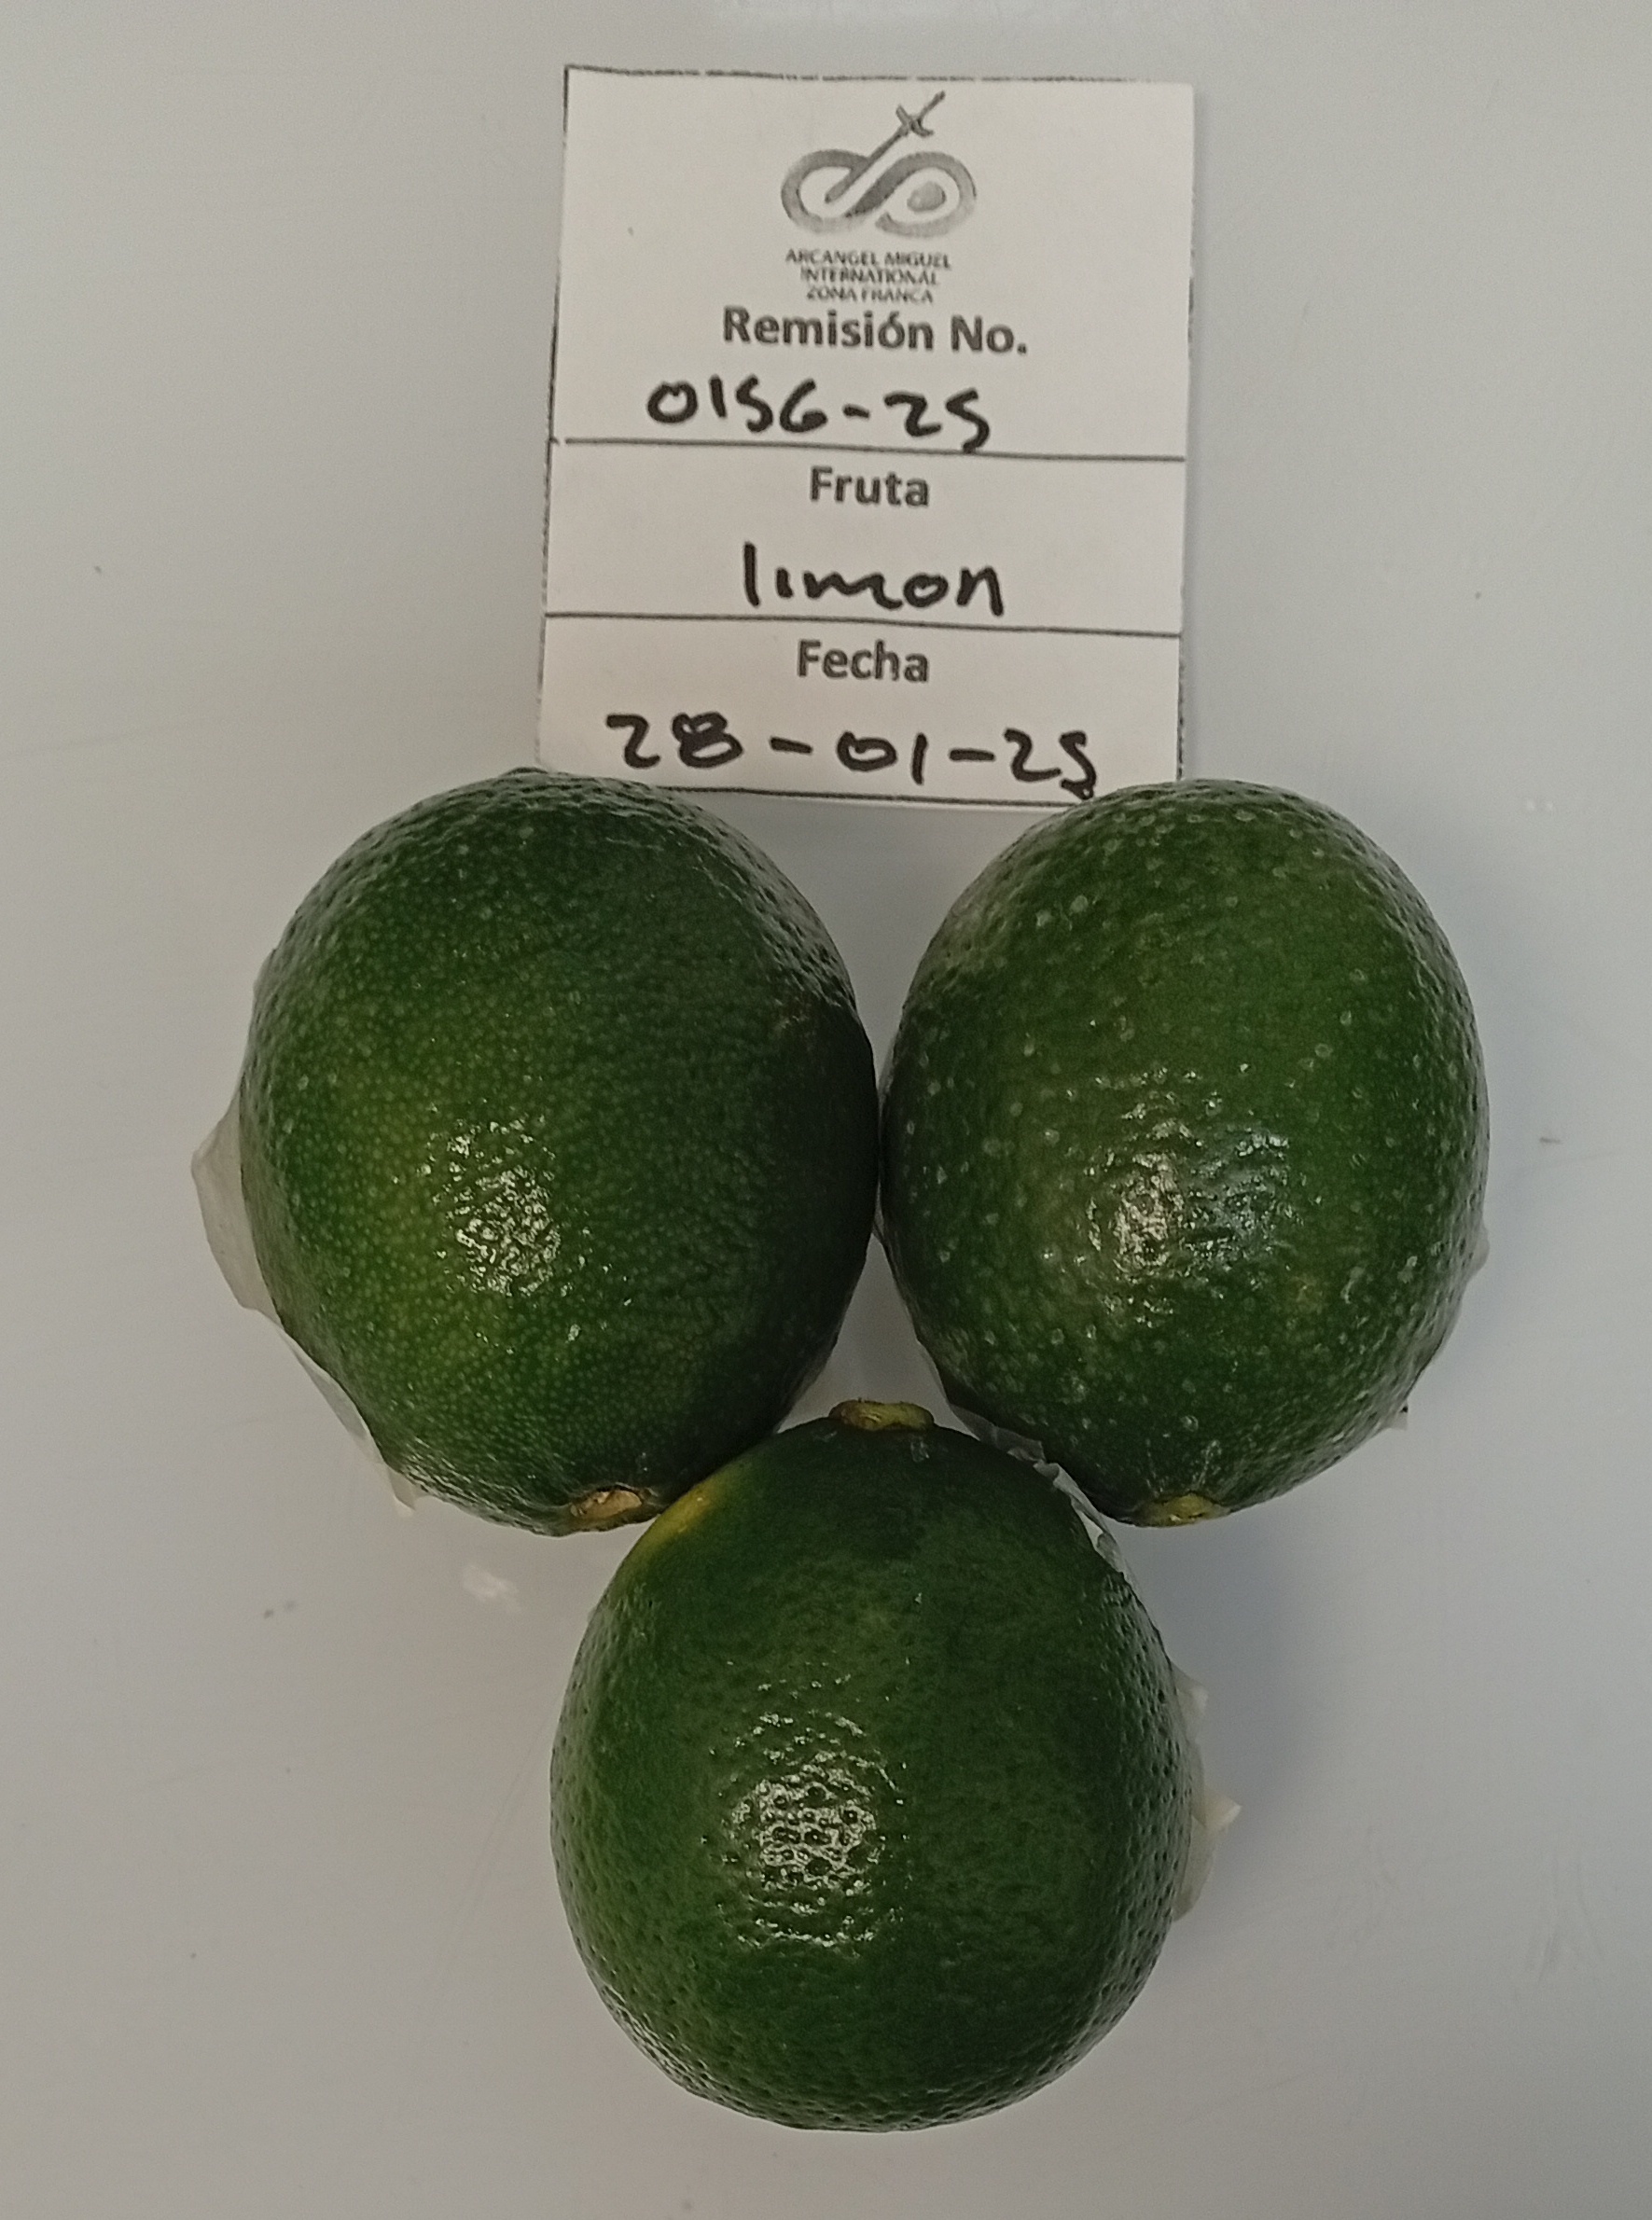 ARCANGEL MIGUEL
INTERNATIONAL
ZONA FRANCA
Remisión No.
0156-25
Fruta
limon
Fecha
28-01-25